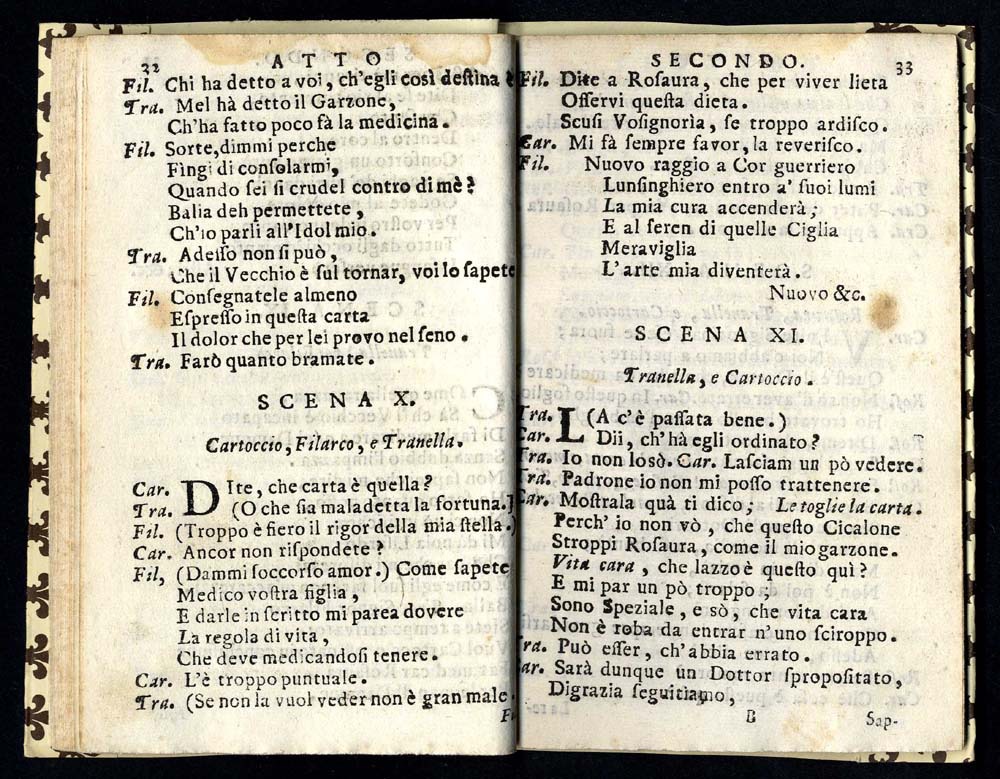 32 ATTO
Fil. Chi ha detto a voi, ch'egli così deſtina
Tra. Mel hà detto il Garzone,
Ch'ha fatto poco fà la medicina.
Fil. Sorte, dimmi perche
Fìngi di conſolarmi,
Quando ſei sì crudel contro di mè?
Balia deh permettete,
Ch'io parli all'Idol mio.
Tra. Adeſſo non ſi può,
Che il Vecchio è ſul tornar, voi lo ſapete
Fil. Conſegnatele almeno
Eſpreſſo in queſta carta
Il dolor che per lei provo nel ſeno.
Tra. Farò quanto bramate.
SCENA X.
Cartoccio, Filarco, e Tranella.
Car. DIte, che carta è quella?
Tra. (O che ſia maladetta la fortuna.)
Fil. (Troppo è fiero il rigor della mia ſtella.)
Car. Ancor non riſpondete?
Fil, (Dammi ſoccorſo amor.) Come ſapete
Medico voſtra figlia,
E darle in ſcritto mi parea dovere
La regola di vita,
Che deve medicandoſi tenere.
Car. L'è troppo puntuale.
Tra. (Se non la vuol veder non è gran male.
SECONDO. 33
Fil. Dite a Roſaura, che per viver lieta
Oſſervi queſta dieta.
Scuſi Voſignorìa, ſe troppo ardiſco.
Car. Mi fà ſempre favor, la reveriſco.
Fil. Nuovo raggio a Cor guerriero
Lunſinghiero entro a' ſuoi lumi
La mia cura accenderà;
E al ſeren di quelle Ciglia
Meraviglia
L'arte mia diventerà.
Nuovo &c.
SCENA XI.
Tranella, e Cartoccio.
Tra. L(A c'è paſſata bene.)
Car. Dii, ch'hà egli ordinato?
Tra. Io non losò. Car. Laſciam un pò vedere.
Tra. Padrone io non mi poſſo trattenere.
Car. Moſtrala quà ti dico; Le toglie la carta.
Perch' io non vò, che queſto Cicalone
Stroppi Roſaura, come il mio garzone.
Vita cara, che lazzo è queſto quì?
E mi par un pò, troppo;
Sono Speziale, e sò, che vita cara
Non è roba da entrar n'uno sciroppo.
Tra. Può eſſer, ch'abbia errato.
Car. Sarà dunque un Dottor ſpropoſitato,
Digrazia ſeguitiamo,
B Sap-